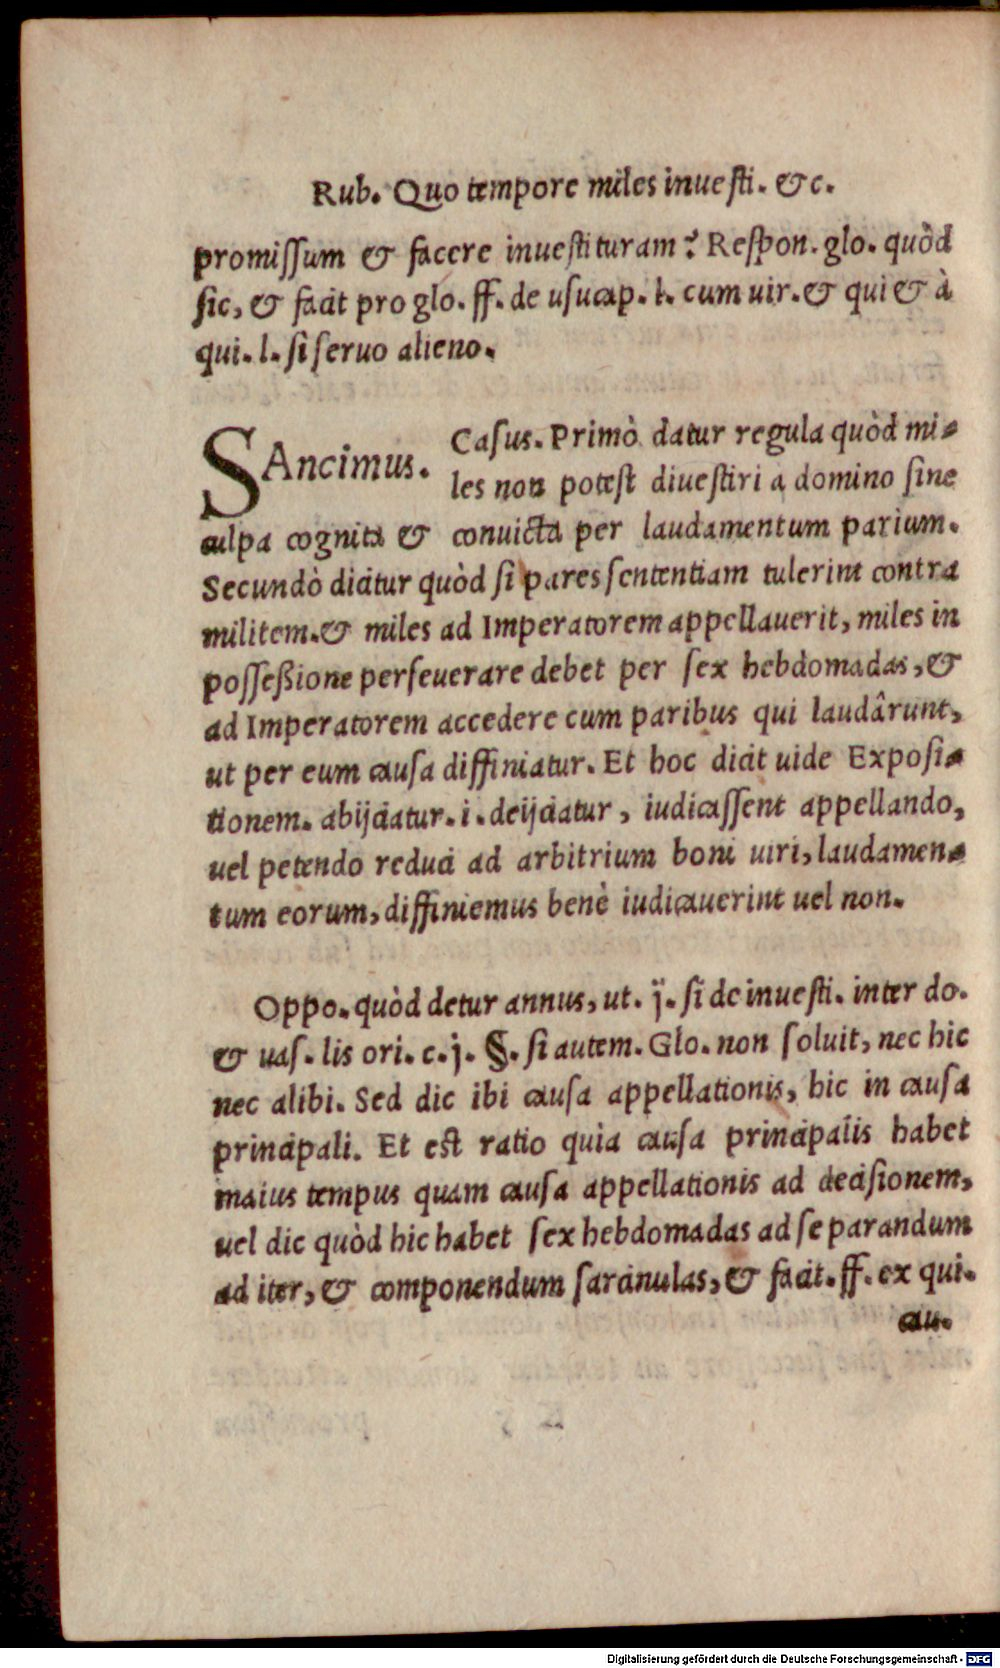 Rub. Quo tempore miles inuesti. &c.
promissum & facere inuestituram? Respon. glo. quòd
sic, & facit pro glo. ff. de usucap. l. cum uir. & qui & à
qui. l. si seruo alieno.
SAncimus. Casus. Primò datur regula quòd mi-
les non potest diuestiri a domino sine
culpa cognita & conuicta per laudamentum parium.
Secundò dicitur quòd si pares sententiam tulerint contra
militem. & miles ad Imperatorem appellauerit, miles in
possessione perseuerare debet per sex hebdomadas, &
ad Imperatorem accedere cum paribus qui laudârunt,
ut per eum causa diffiniatur. Et hoc dicit uide Exposi-
tionem. abijciatur. i. deijciatur, iudicassent appellando,
uel petendo reduci ad arbitrium boni uiri, laudamen-
tum eorum, diffiniemus benè iudicauerint uel non.
Oppo. quòd detur annus, ut. j. si de inuesti. inter do.
& uas. lis ori. c. j. §. si autem. Glo. non soluit, nec hic
nec alibi. Sed dic ibi causa appellationis, hic in causa
principali. Et est ratio quia causa principalis habet
maius tempus quam causa appellationis ad decisionem,
uel dic quòd hic habet sex hebdomadas ad se parandum
ad iter, & componendum sarcinulas, & facit. ff. ex qui.
cau.
Digitalisierung gefördert durch die Deutsche Forschungsgemeinschaft - DFG